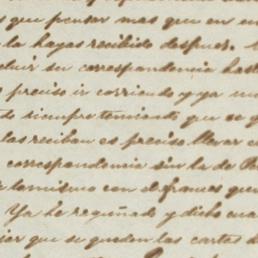 que pensar mas que en un
la hayas recibido despues.
su correspondencia hast
preciso ir corriendo y ya
siempre temiendo que se
las reciban es preciso llevar
correspondencia sin la de
lo mismo con el frances que
Ya he reguñado y dicho cua
que se queden las cartas d